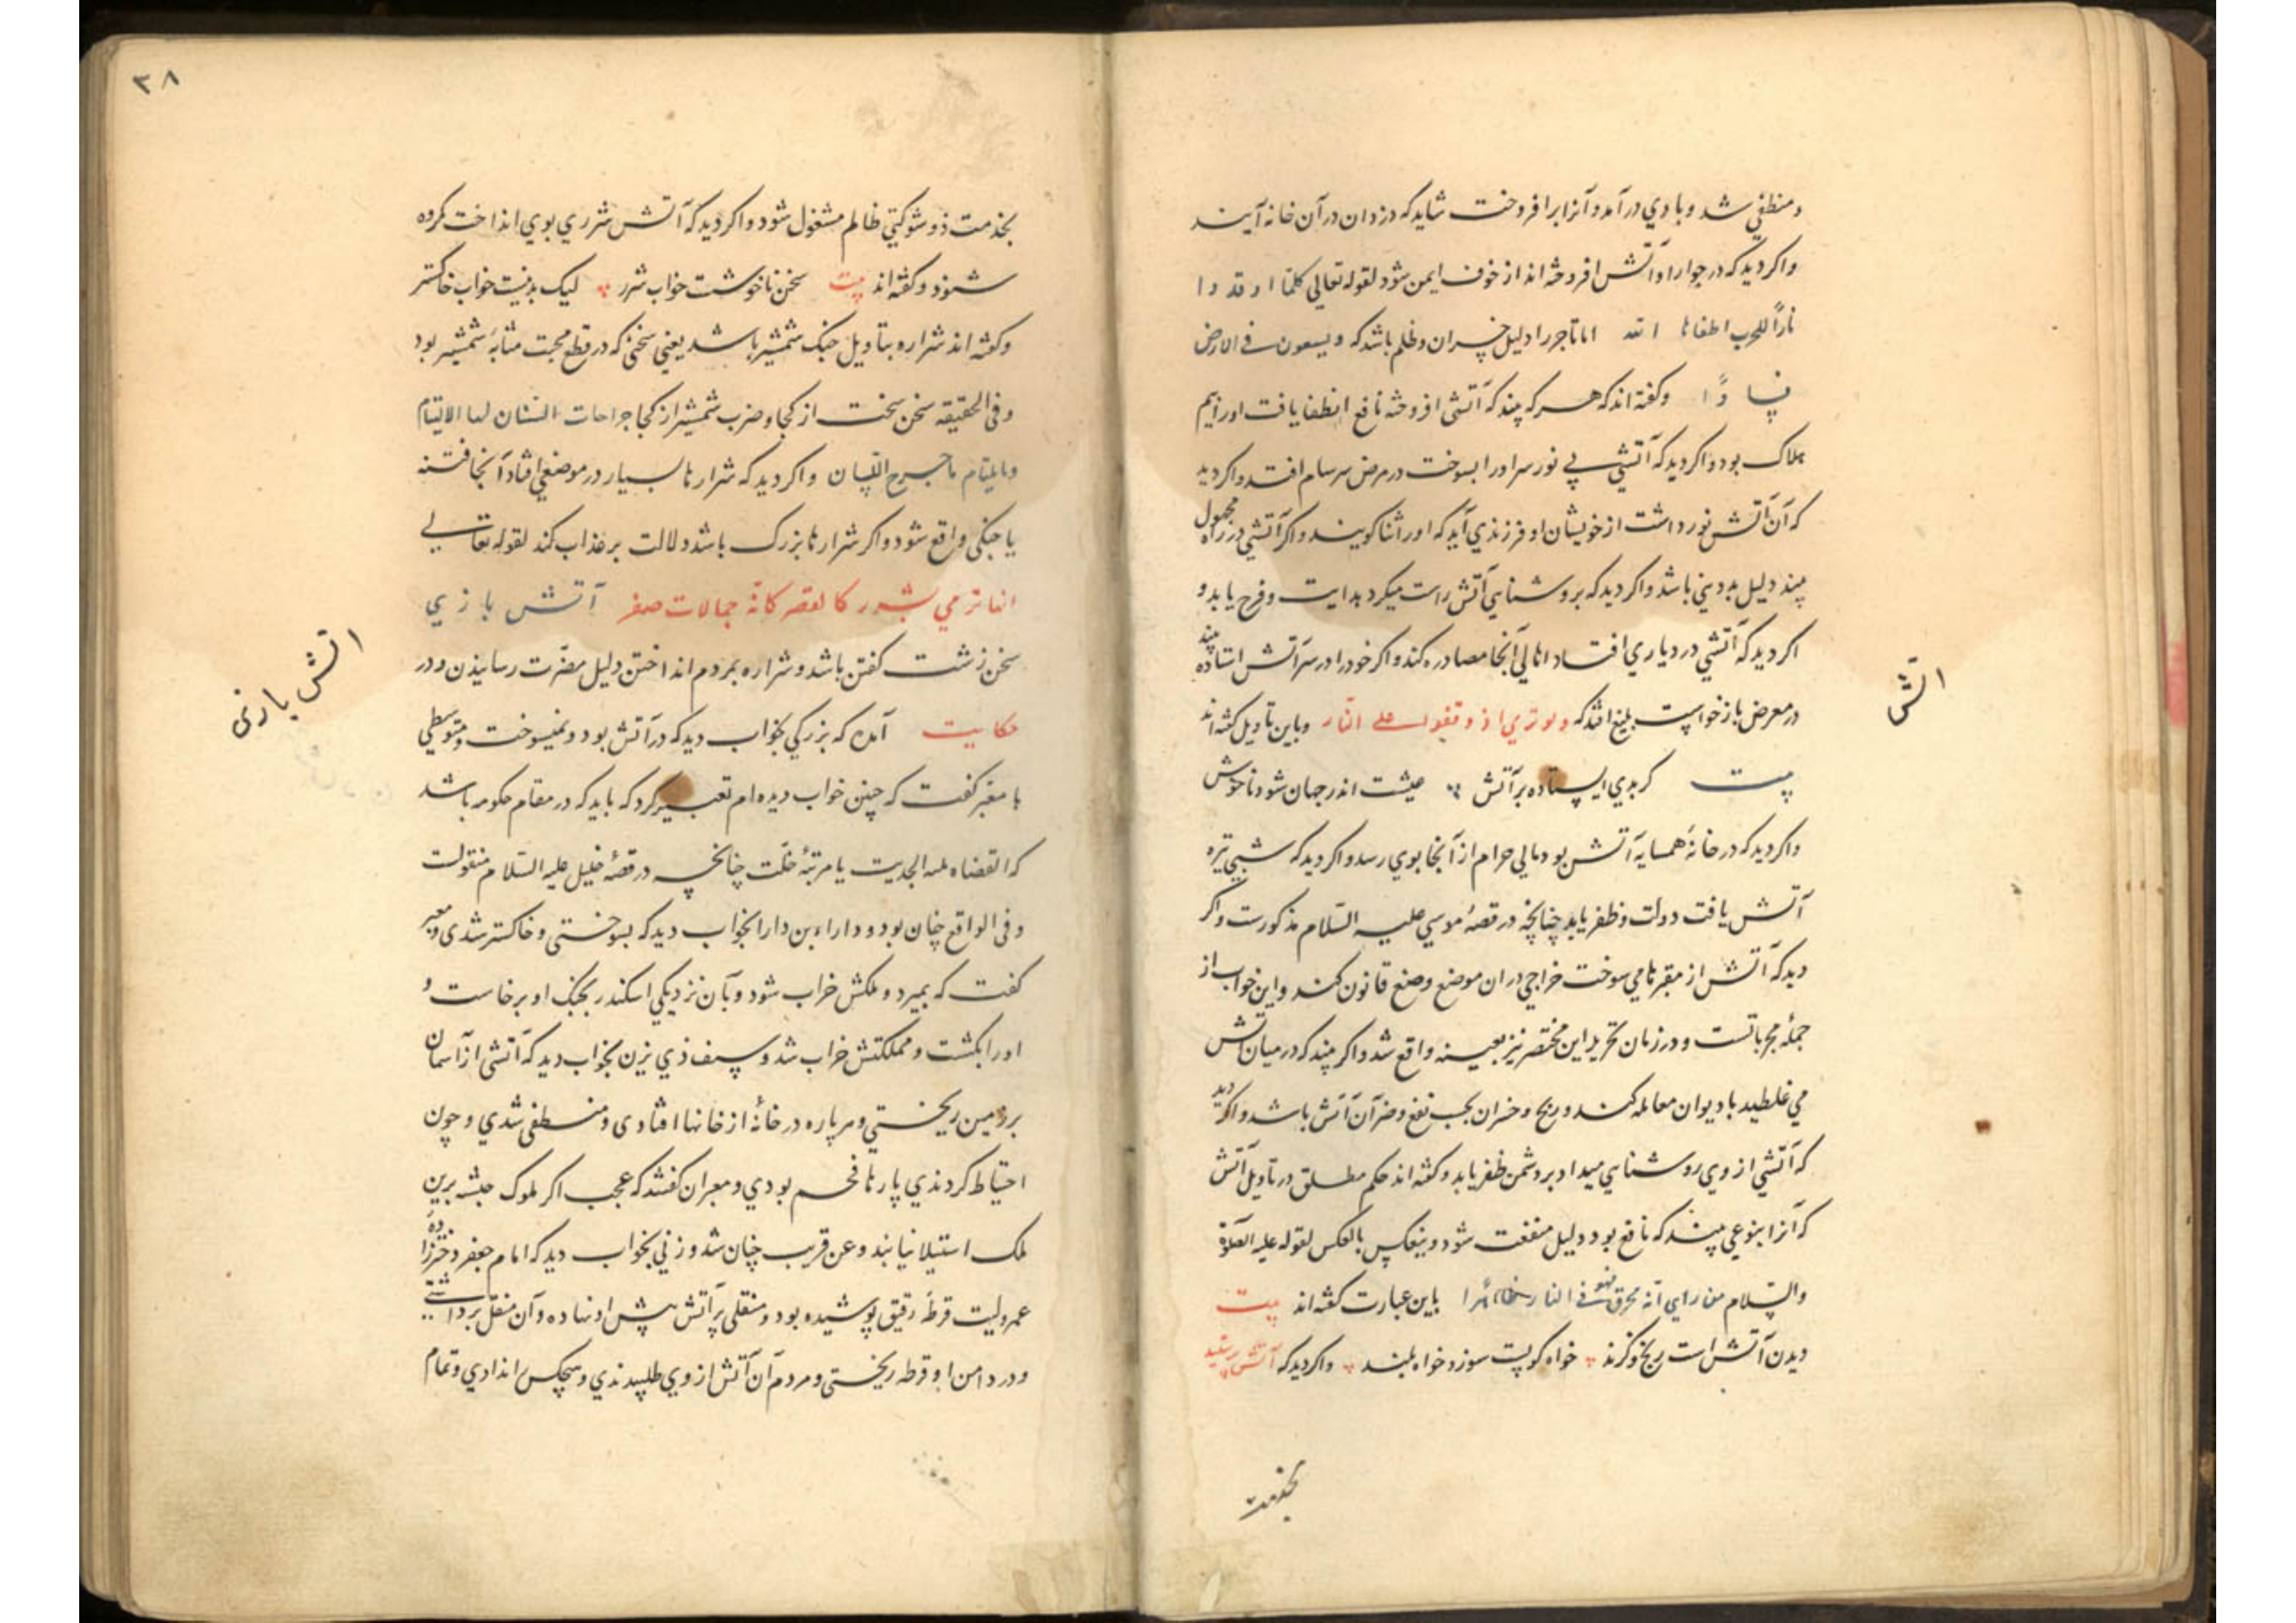 ومنطفی شد و بادی درآمد و آنرا برافروخت شاید که دزدان در آن خانه آیند
واکر دید که در جوار او آتش افروخته اند از خوف ایمن شود لقوله تعالی کلما اوقدوا
ناراً للحرب اطفاها الله اما تاجر را دلیل خسران و ظلم باشد که ویسعون فی الارض
فسادًا وکفته اند که هر که بیند که آتشی افروخته نافع انطفا یافت او را بیم
هلاک بود واکر دید که آتشی بی نور سر او را بسوخت در مرض سرسام افتد واکر دید
که آن آتش نور داشت از خویشان او فرزندی آید که او را ثنا کویند واکر آتشی در راه مجهول
بیند دلیل بددینی باشد واکر دید که بروشنایی آتش راست میکرد هدایت و فرح یابد و
اکر دید که آتشی در دیاری افتاد اهالی آنجا مصادره کند واکر خود را در سر آتش استاده بیند
در معرض بازخواست بلیغ افتد که ولو تری اذ وقفوا علی النار وباین تاویل کفته اند
بیت کر بدی ایستاده بر آتش عیشت اندر جهان شود ناخوش
واکر دید که در خانهٔ همسایه آتش بود مالی حرام از آنجا بوی رسد واکر دید که شبی تیره
آتش یافت دولت و ظفر یابد چنانچه در قصهٔ موسی علیه السلام مذکورست واکر
دید که آتش از مقبرها می سوخت خراجی در ان موضع وضع قانون کنند واین خواب از
جملهٔ مجرباتست و در زمان تحریر این مختصر نیز بعینه واقع شد واکر بیند که در میان آتش
می غلطید با دیوان معامله کند و ربح و خسران بحسب نفع و ضر آن آتش باشد واکر دید
که آتشی از وی روشنایی میداد بر دشمن ظفر یابد وکفته اند حکم مطلق در تاویل آتش
که آنرا بنوعی بیند که نافع بود دلیل منفعت شود وینعکس بالعکس لقوله علیه الصلوة
والسلام من رای انه محرق فهو فی النار باین عبارت کفته اند بیت
دیدن آتش است رنج و کزند خواه کو پست سوزد خواه بلند واکر دید که آتش پرستید
بخدمت
آتش
۳۸
بخدمت ذو شوکتی ظالم مشغول شود واکر دید که آتش شرری بوی انداخت مکروه
شنود وکفته اند بیت سخن ناخوشست خواب شرر لیک بد نیست خواب خاکستر
وکفته اند شراره بتاویل جنک شمشیر باشد یعنی سخنی که در قطع محبت مثابهٔ شمشیر بود
وفی الحقیقه سخن سخت از کجا و ضرب شمشیر از کجا جراحات السنان لها الالتیام
ولا یلتام ما جرح اللسان واکر دید که شرارها بسیار در موضعی افتاد آنجا فتنه
یا جنکی واقع شود واکر شرارها بزرک باشد دلالت بر عذاب کند لقوله تعالی
انها ترمی بشرر کالقصر کانه جمالات صفر آتش بازی
سخن زشت کفتن باشد و شراره بمردم انداختن دلیل مضرت رسانیدن و در
حکایت آمده که بزرکی بخواب دید که در آتش بود و نمیسوخت و متوسطی
با معبر کفت که چنین خواب دیده ام تعبیر کرد که باید که در مقام حکومه باشد
که القضاه یا مرتبهٔ خلت چنانچه در قصهٔ خلیل علیه السلام منقولست
وفی الواقع چنان بود و داراء بن دارا بخواب دید که بسوختی و خاکستر شدی معبر
کفت که بمیرد و ملکش خراب شود و بآن نزدیکی اسکندر بجنک او برخاست و
او را بکشت و مملکتش خراب شد و سیف ذی یزن بخواب دید که آتشی از آسمان
بر زمین ریختی و هر پاره در خانهٔ از خانها افتادی و منطفی شدی و چون
احتیاط کردندی پارها فحم بودی و معبران کفتند که عجب اکر ملوک حبشه برین
ملک استیلا نیابند و عن قریب چنان شد و زنی بخواب دید که امام جعفر دختر زادهٔ
عمرولیت قرطهٔ رقیق پوشیده بود و منقلی پر آتش پیش او نهاده و آن منقل برداشتی
ودر دامن او قرطه ریختی و مردم آن آتش از وی طلبیدندی و بهیچکس ندادی و تمام
اتش بازی